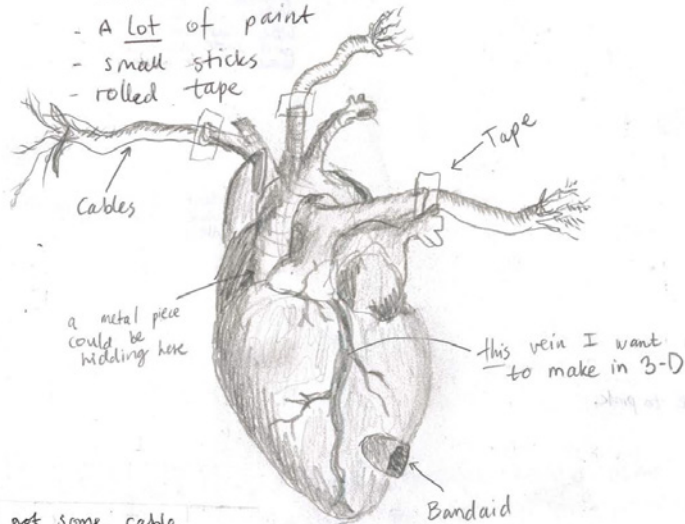 - A lot of paint
- small sticks
- rolled tape
Tape
Cables
a metal piece
could be
hidding here
this vein I want
to make in 3-D
Bandaid
got some cable